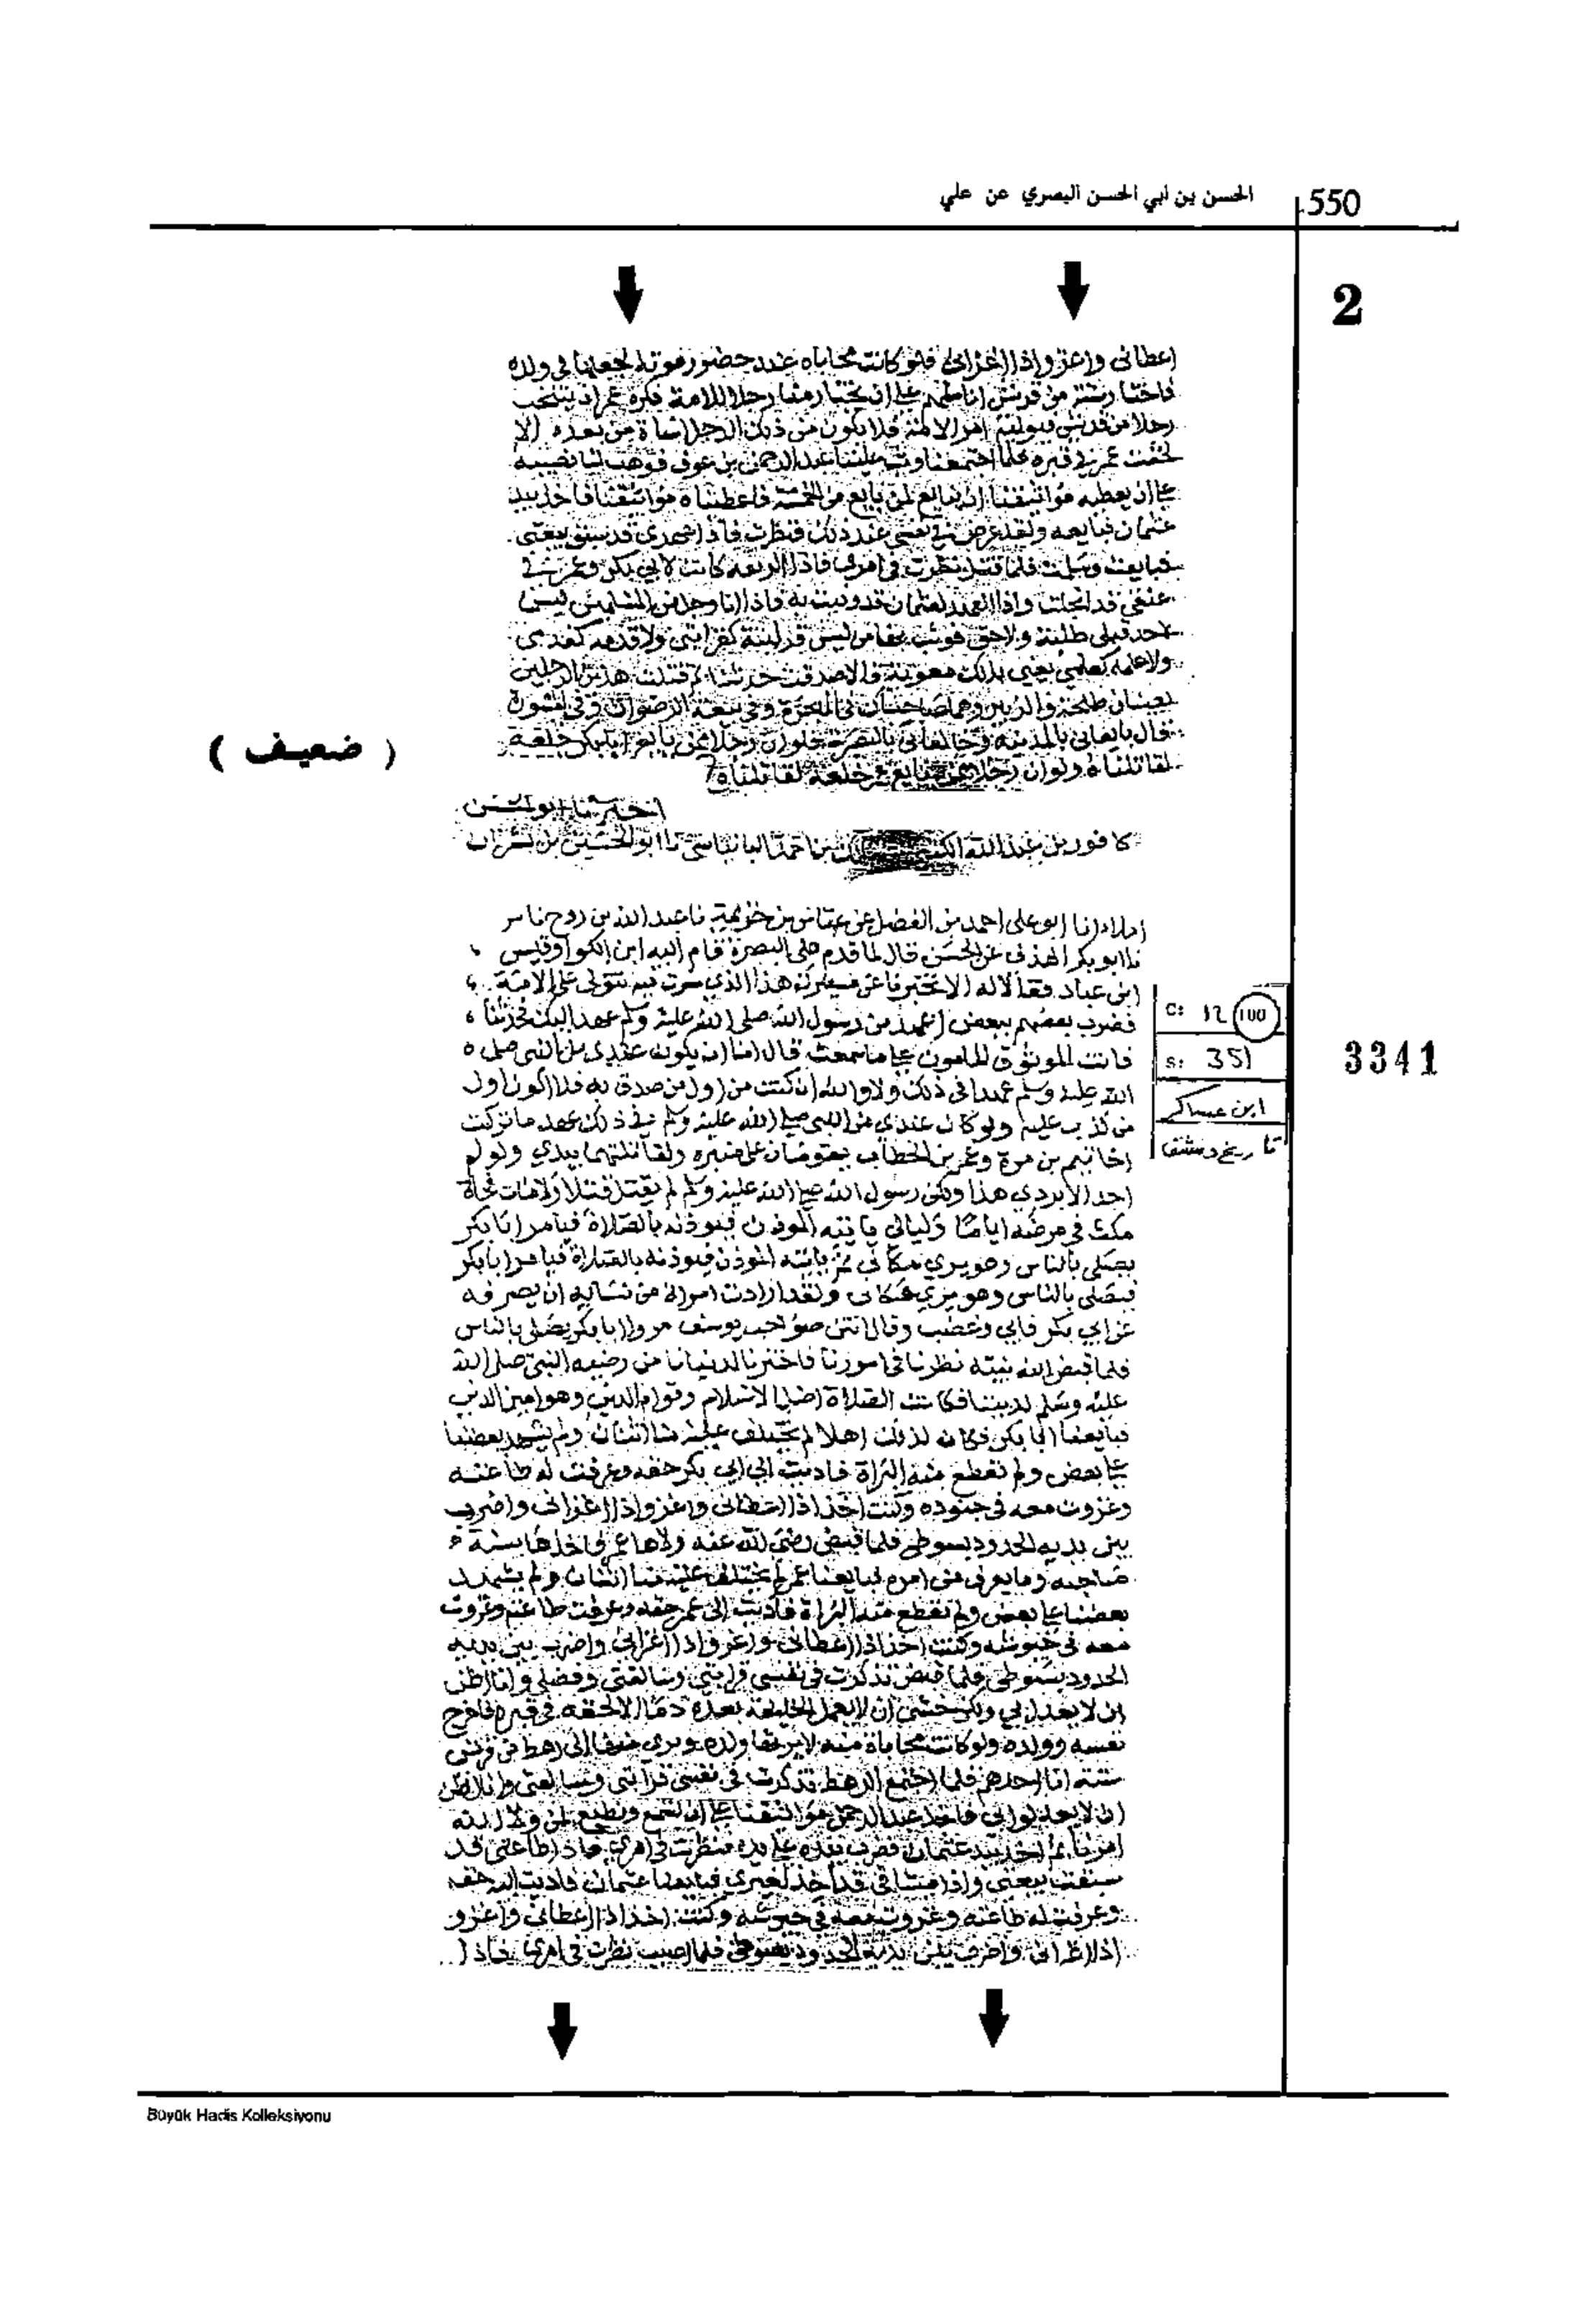 الحسن بن أبي الحسن البصري عن علي
550
2
اعطاني واغزو اذا اغزاني فلو كانت محاباه عند حضور موته لجعلها في ولده
فاختار من قريش انا على ان نختار منا رجلا للامة فكره عمر ان ينتخب
رجلا من قريش فيوليه امر الامة فلا يكون من ذلك الرجل اساة من بعده الا
لحقت عمر في قبره فلما اجتمعنا وثب علينا عبد الرحمن بن عوف فوهب لنا نصيبه
على ان نعطيه مواثيقنا ان نبايع لمن بايع من الخمسة فاعطيناه مواثيقنا فاخذ بيد
عثمان فبايعه ولقد عرض في نفسي عند ذلك فنظرت فاذا عهدي قد سبق بيعتي
فبايعت وسلمت فلما قتل نظرت في امري فاذا الربقه كانت لابي بكر وعمر في
عنقي قد انحلت واذا العهد لعثمان قد وفيت به فاذا انا رجل من المسلمين ليس
لاحد قبلي طلبة ولا حق فوثب فيها من ليس قرابته كقرابتي ولا قدمه كقدمي
ولا علمه كعلمي يعني بذلك معوية قالا صدقت حدثنا لم قتلت هذين الرجلين
يعنيان طلحة والزبير وهما صاحباك في الهجرة وفي بيعة الرضوان وفي المشورة
قال بايعاني بالمدينة وخالفاني بالبصرة فلو ان رجلا ممن بايع ابا بكر خلعه
لقاتلناه ولو ان رجلا ممن بايع عمر خلعه لقاتلناه
( ضعيف )
اخبرنا ابو الحسن
كافور بن عبد الله بن احمد البانياسي نا ابو الحسين بن بشران
املاء انا ابو علي احمد بن الفضل عن عباس بن خزيمة نا عبد الله بن روح نا
نا ابو بكر الهذلي عن الحسن قال لما قدم علي البصرة قام اليه ابن الكوا وقيس
ابن عباد فقالا له الا تخبرنا عن مسيرك هذا الذي سرت فيه تتولى على الامة
فضرب بعضهم ببعض اعهد من رسول الله صلى الله عليه وسلم عهد اليك فحدثنا
فانت الموثوق المامون على ما سمعت قال اما ان يكون عندي من النبي صلى
الله عليه وسلم عهدا في ذلك ولا والله ان كنت من اول من صدق به فلا اكون اول
من كذب عليه ولو كان عندي من النبي صلى الله عليه وسلم في ذلك عهد ما تركت
اخا تيم بن مرة وعمر بن الخطاب يقومان على منبره ولقاتلتهما بيدي ولو لم
اجد الا بردي هذا ولكن رسول الله صلى الله عليه وسلم لم يقتل قتلا ولا مات فجاة
مكث في مرضه اياما وليالي ياتيه الموذن فيوذنه بالصلاة فيامر ابا بكر
يصلي بالناس وهو يرى مكاني ثم ياتيه الموذن فيوذنه بالصلاة فيامر ابا بكر
فيصلي بالناس وهو يرى مكاني ولقد ارادت امراة من نسائه ان يصرفه
عن ابي بكر فابى وغضب وقال انتن صواحب يوسف مروا ابا بكر يصلي بالناس
فلما قبض الله نبيه نظرنا في امورنا فاخترنا لدنيانا من رضيه النبي صلى الله
عليه وسلم لديننا فكانت الصلاة اصل الاسلام وقوام الدين وهو امين الدين
فبايعنا ابا بكر فكان لذلك اهلا لم يختلف عليه منا اثنان ولم يشهد بعضنا
على بعض ولم نقطع منه البراة فاديت الى ابي بكر حقه وعرفت له طاعته
وغزوت معه في جنوده وكنت اخذ اذا اعطاني واغزو اذا اغزاني واضرب
بين يديه الحدود بسوطي فلما قبض رضي الله عنه ولاها عمر فاخذها بسنة
صاحبه وما يعرف من امره فبايعنا عمر لم يختلف عليه منا اثنان ولم يشهد
بعضنا على بعض ولم نقطع منه البراة فاديت الى عمر حقه وعرفت طاعته وغزوت
معه في جيوشه وكنت اخذ اذا اعطاني واغزو اذا اغزاني واضرب بين يديه
الحدود بسوطي فلما قبض تذكرت في نفسي قرابتي وسالفتي وفضلي وانا اظن
ان لا يعدل بي ولكن خشي ان لا يعمل الخليفة بعده ذنبا الا لحقه في قبره فاخرج
نفسه وولده ولو كانت محاباة منه لاثر بها ولده وبرئ منها الى رهط من قريش
ستة انا احدهم فلما اجتمع الرهط تذكرت في نفسي قرابتي وسالفتي وانا اظن
ان لا يعدلوا بي فاخذ عبد الرحمن مواثيقنا على ان نسمع ونطيع لمن ولاه الله
امرنا ثم اخذ بيد عثمان فضرب بيده على يده فنظرت في امري فاذا طاعتي قد
سبقت بيعتي واذا ميثاقي قد اخذ لغيري فبايعنا عثمان فاديت اليه حقه
وعرفت له طاعته وغزوت معه في جيوشه وكنت اخذ اذا اعطاني واغزو
اذا اغزاني واضرب بين يديه الحدود بسوطي فلما اصيب نظرت في امري فاذا
C: 12 100
S: 351
ابن عساكر
تاريخ دمشق
3341
Büyük Hadis Kolleksiyonu